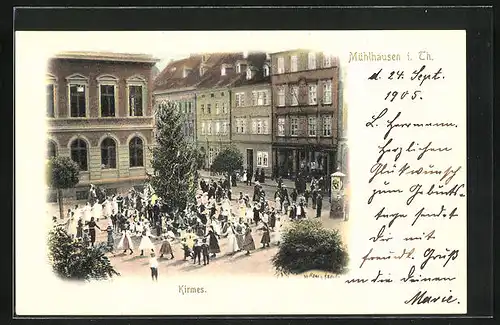 Mühlhausen i. Th.
d. 24 Sept.
1905.
L. Herrmann.
Herzlichen
Glükwünsch
zum Geburts-
tage sendet
Dir mit
freundl. Gruß
an die deinen
Marie.
Kirmes.